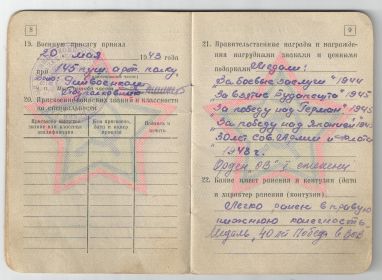 8
19. Военную присягу принял
20 мая 1943 года
при 145 пуш. арт. полку
20. Присвоение воинских званий и классности
по специальности
Присвоено воинское звание или классная квалификация
Кем присвоено, дата и номер приказа
Подпись и печать
9
21. Правительственные награды и награждения нагрудными знаками и ценными
подарками Медали:
"За боевые заслуги" 1944
"За взятие Будапешта" 1945
"За победу над Герман" 1945
"За победу над Японией" 1945
"30 лет Сов. Армии и Флота"
1948 г.
Орден "ОВ" I степени
22. Какие имеет ранения и контузии (дата
и характер ранения (контузии)
Легко ранен в правую
нижнюю конечность.
Медаль "40 лет Победы в ВОВ